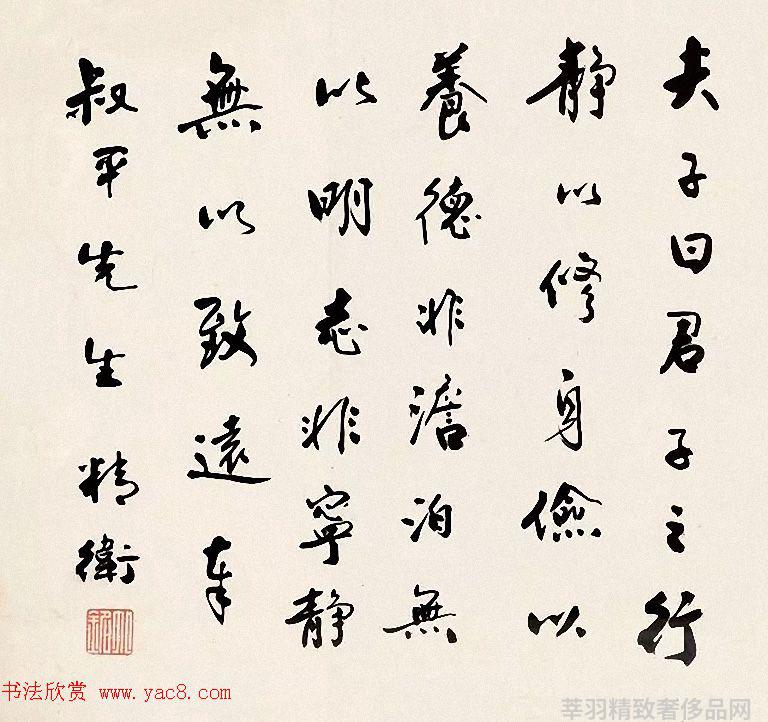 夫子曰君子之行
靜以修身儉以
養德非澹泊無
以明志非寧靜
無以致遠奉
叔平先生 精衛
书法欣赏 www.yac8.com
莘羽精致奢侈品网